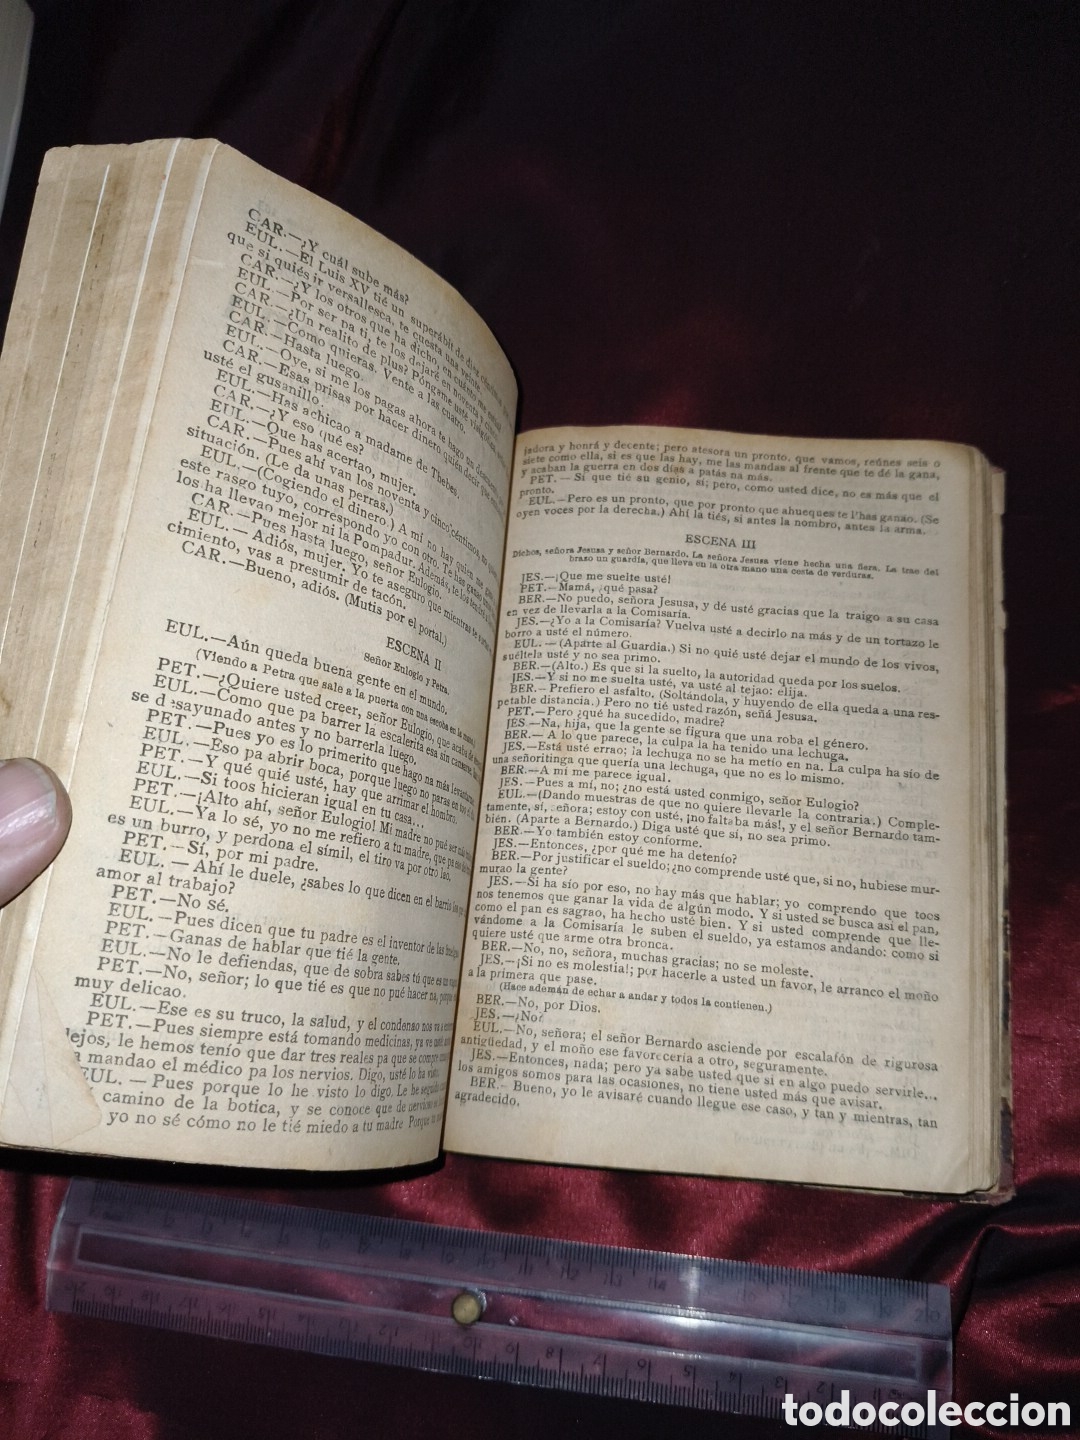 CAR.—¿Y cuál sube más?
EUL.—El Luis XV tié un superábit de diez céntimos,
que si quiés ir versallesca, te cuesta una veinte.
CAR.—¿Y los otros que ha dicho, en cuánto me
EUL.—Por ser pa ti, te los dejaré en noventa y cinco.
CAR.—¿Un realito de plus? Póngame usté
EUL.—Como quieras. Vente a las cuatro.
CAR.—Hasta luego.
EUL.—Oye, si me los pagas ahora te hago un
CAR.—Esas prisas por hacer dinero, quién decir que
usté el gusanillo.
EUL.—Has achicao a madame de Thebes.
CAR.—¿Y eso qué es?
EUL.—Que has acertao, mujer.
CAR.—Pues ahí van los noventa y cinco céntimos,
situación. (Le da unas perras.)
EUL.—(Cogiendo el dinero.) A mí no hay quien me
este rasgo tuyo, correspondo yo con otro. Te has
los ha llevao mejor ni la Pompadur. Además, te los
CAR.—Pues hasta luego, señor Eulogio.
EUL.—Adiós, mujer. Yo te aseguro que mientras
cimiento, vas a presumir de tacón.
CAR.—Bueno, adiós. (Mutis por el portal.)
ESCENA II
Señor Eulogio y Petra.
EUL.—Aún queda buena gente en el mundo.
(Viendo a Petra que sale a la puerta con una escoba en la mano.)
PET.—¿Quiere usted creer, señor Eulogio, que acaba de
EUL.—Como que pa barrer la escalerita esa sin cansarse,
se desayunado antes y no barrerla luego.
PET.—Pues yo es lo primerito que hago na más levantarme.
EUL.—Eso pa abrir boca, porque luego no paras en
PET.—Y qué quié usté, hay que arrimar el hombro.
EUL.—Si toos hicieran igual en tu casa...
PET.—¡Alto ahí, señor Eulogio! Mi madre no pué ser
EUL.—Ya lo sé, yo no me refiero a tu madre, que pa
es un burro, y perdona el símil, el tiro va por otro lao,
PET.—Sí, por mi padre.
EUL.—Ahí le duele, ¿sabes lo que dicen en el barrio
amor al trabajo?
PET.—No sé.
EUL.—Pues dicen que tu padre es el inventor de las
PET.—Ganas de hablar que tié la gente.
EUL.—No le defiendas, que de sobra sabes tú que es un
PET.—No, señor; lo que tié es que no pué hacer na, porque
muy delicao.
EUL.—Ese es su truco, la salud, y el condenao nos va a
PET.—Pues siempre está tomando medicinas, ya ve usté
lejos, le hemos tenío que dar tres reales pa que se compre
mandao el médico pa los nervios. Digo, usté lo ha
EUL.—Pues porque lo he visto lo digo. Le he seguido
camino de la botica, y se conoce que de
yo no sé cómo no le tié miedo a tu madre Porque
jadora y honrá y decente; pero atesora un pronto, que vamos, reúnes seis o
siete como ella, si es que las hay, me las mandas al frente que te dé la gana,
y acaban la guerra en dos días a patás na más.
PET.—Sí que tié su genio, sí; pero, como usted dice, no es más que el
pronto.
EUL.—Pero es un pronto, que por pronto que ahueques te l'has ganao. (Se
oyen voces por la derecha.) Ahí la tiés, si antes la nombro, antes la arma.
ESCENA III
Dichos, señora Jesusa y señor Bernardo. La señora Jesusa viene hecha una fiera. La trae del
brazo un guardia, que lleva en la otra mano una cesta de verduras.
JES.—¡Que me suelte usté!
PET.—Mamá, ¿qué pasa?
BER.—No puedo, señora Jesusa, y dé usté gracias que la traigo a su casa
en vez de llevarla a la Comisaría.
JES.—¿Yo a la Comisaría? Vuelva usté a decirlo na más y de un tortazo le
borro a usté el número.
EUL.—(Aparte al Guardia.) Si no quié usté dejar el mundo de los vivos,
suéltela usté y no sea primo.
BER.—(Alto.) Es que si la suelto, la autoridad queda por los suelos.
JES.—Y si no me suelta usté, va usté al tejao; elija.
BER.—Prefiero el asfalto. (Soltándola, y huyendo de ella queda a una res-
petable distancia.) Pero no tié usted razón, señá Jesusa.
PET.—Pero ¿qué ha sucedido, madre?
JES.—Na, hija, que la gente se figura que una roba el género.
BER.—A lo que parece, la culpa la ha tenido una lechuga.
JES.—Está usté errao; la lechuga no se ha metío en na. La culpa ha sío de
una señoritinga que quería una lechuga, que no es lo mismo.
BER.—A mí me parece igual.
JES.—Pues a mí, no; ¿no está usted conmigo, señor Eulogio?
EUL.—(Dando muestras de que no quiere llevarla la contraria.) Comple-
tamente, sí, señora; estoy con usté, ¡no faltaba más!, y el señor Bernardo tam-
bién. (Aparte a Bernardo.) Diga usté que sí, no sea primo.
BER.—Yo también estoy conforme.
JES.—Entonces, ¿por qué me ha detenío?
BER.—Por justificar el sueldo; ¿no comprende usté que, si no, hubiese mur-
murao la gente?
JES.—Si ha sío por eso, no hay más que hablar; yo comprendo que toos
nos tenemos que ganar la vida de algún modo. Y si usted se busca así el pan,
como el pan es sagrao, ha hecho usté bien. Y si usted comprende que lle-
vándome a la Comisaría le suben el sueldo, ya estamos andando: como si
quiere usté que arme otra bronca.
BER.—No, no, señora, muchas gracias; no se moleste.
JES.—¡Si no es molestia!; por hacerle a usted un favor, le arranco el moño
a la primera que pase.
(Hace ademán de echar a andar y todos la contienen.)
BER.—No, por Dios.
JES.—¿No?
EUL.—No, señora; el señor Bernardo asciende por escalafón de rigurosa
antigüedad, y el moño ese favorecería a otro, seguramente.
JES.—Entonces, nada; pero ya sabe usted que si en algo puedo servirle...
los amigos somos para las ocasiones, no tiene usted más que avisar.
BER.—Bueno, yo le avisaré cuando llegue ese caso, y tan y mientras, tan
agradecido.
todocoleccion